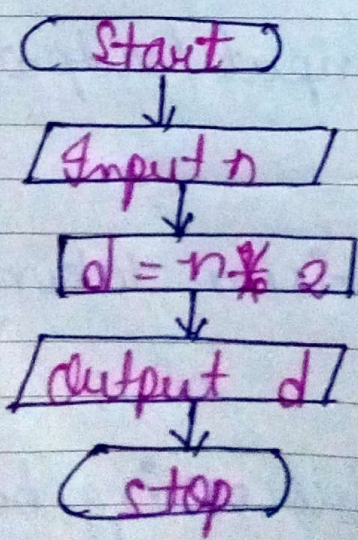 Start
Input n
d = n % 2
Output d
stop